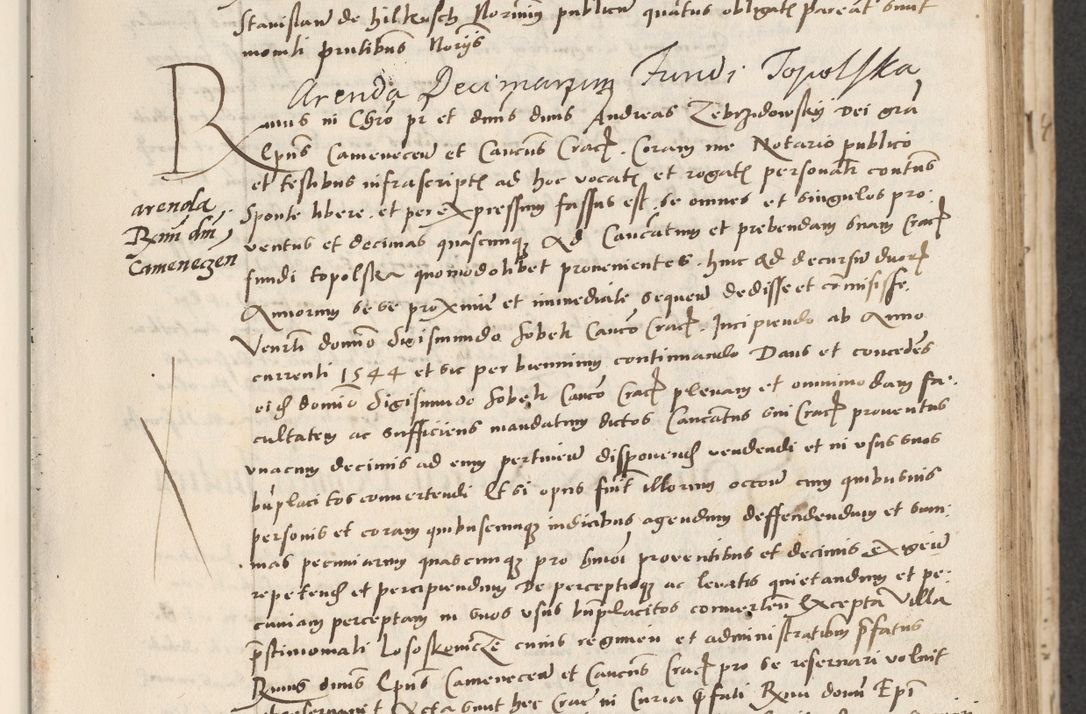 Stanislaw de Hilkusch Norimin publicu quatus obligatz pareat sunt
monili prntibus Norijs
Arenda Decimarum Fundi Topolska
Rmus in Chro pr et dnus dnus Andreas Zebrzidowskij Dei gra
Epus Camenecen et Cancus Crac. Coram me Notario publico
et testibus infrascriptz ad hoc vocatz et rogatz personalr contus
sponte libere et per expressum fassus est se omnes et singulos pro-
ventus et decimas quascunqz ad Cancatum et prebendam suam Crac
fundi topolska quomodolibet provenientes hinc ad decursu duor
Annorum se se proxime et immediate sequen dedisse et comisisse
Venrli domino Sigismundo Sobek Canco Crac. Incipiendo ab Anno
currenti 1544 et sic per biennium continuando Dans et concedens
eid domino Sigismundo Sobek Canco Crac plenam et omnimodam fa-
cultatem ac sufficiens mandatum dictos Cancatus sui Crac proventus
unacum decimis ad eum pertinen disponend vendendi et in usus suos
bnplacitos convertendi Et si opus fuit illorum occone cum quibusvis
personis et coram quibuscunqz iudicibus agendum deffendendum et sum-
mas pecuniarum quascunqz pro hmoi proventibus et decimis exigen
repetend et percipiendum De perceptisqz ac levatis quietandum et pe-
cuniam perceptam in suos usus bnplacitos converten Excepta villa
prstimoniali Lososkowicze cuius regimen et administrationem prfatus
Rmus dnus Epus Camenecen et Cancus Crac pro se reservari voluit
Acta sunt hec Crac in Curia prfati Rmi domi Epi
arenda
Rmi dni
Cameneczen